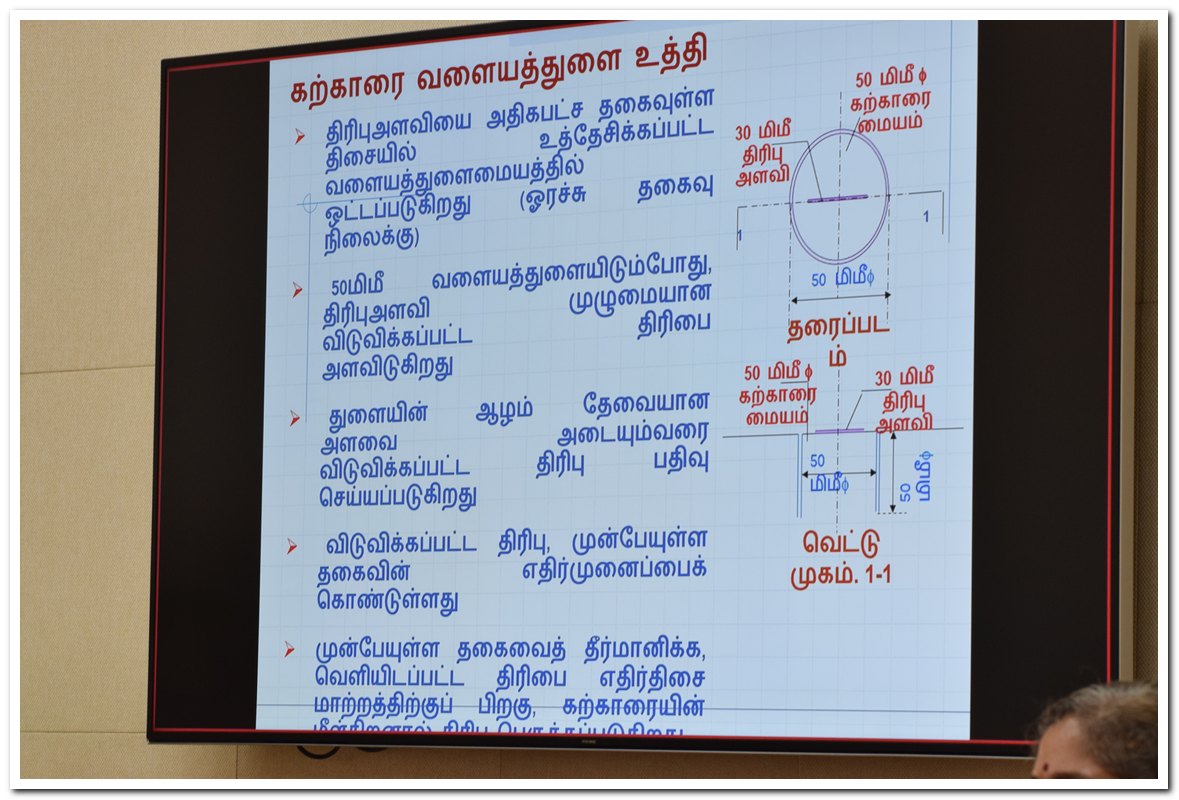 கற்காரை வளையத்துளை உத்தி
திரிபுஅளவியை அதிகபட்ச தகைவுள்ள
திசையில் உத்தேசிக்கப்பட்ட
வளையத்துளைமையத்தில்
ஒட்டப்படுகிறது (ஓரச்சு தகைவு
நிலைக்கு)
50மிமீ வளையத்துளையிடும்போது,
திரிபுஅளவி முழுமையான
விடுவிக்கப்பட்ட திரிபை
அளவிடுகிறது
துளையின் ஆழம் தேவையான
அளவை அடையும்வரை
விடுவிக்கப்பட்ட திரிபு பதிவு
செய்யப்படுகிறது
விடுவிக்கப்பட்ட திரிபு, முன்பேயுள்ள
தகைவின் எதிர்முனைப்பைக்
கொண்டுள்ளது
முன்பேயுள்ள தகைவைத் தீர்மானிக்க,
வெளியிடப்பட்ட திரிபை எதிர்திசை
மாற்றத்திற்குப் பிறகு, கற்காரையின்
50 மிமீ ϕ
கற்காரை
மையம்
30 மிமீ
திரிபு
அளவி
1
1
50 மிமீϕ
தரைப்பட
ம்
50 மிமீ ϕ
கற்காரை
மையம்
30 மிமீ
திரிபு
அளவி
50
மிமீϕ
50
மிமீϕ
வெட்டு
முகம். 1-1